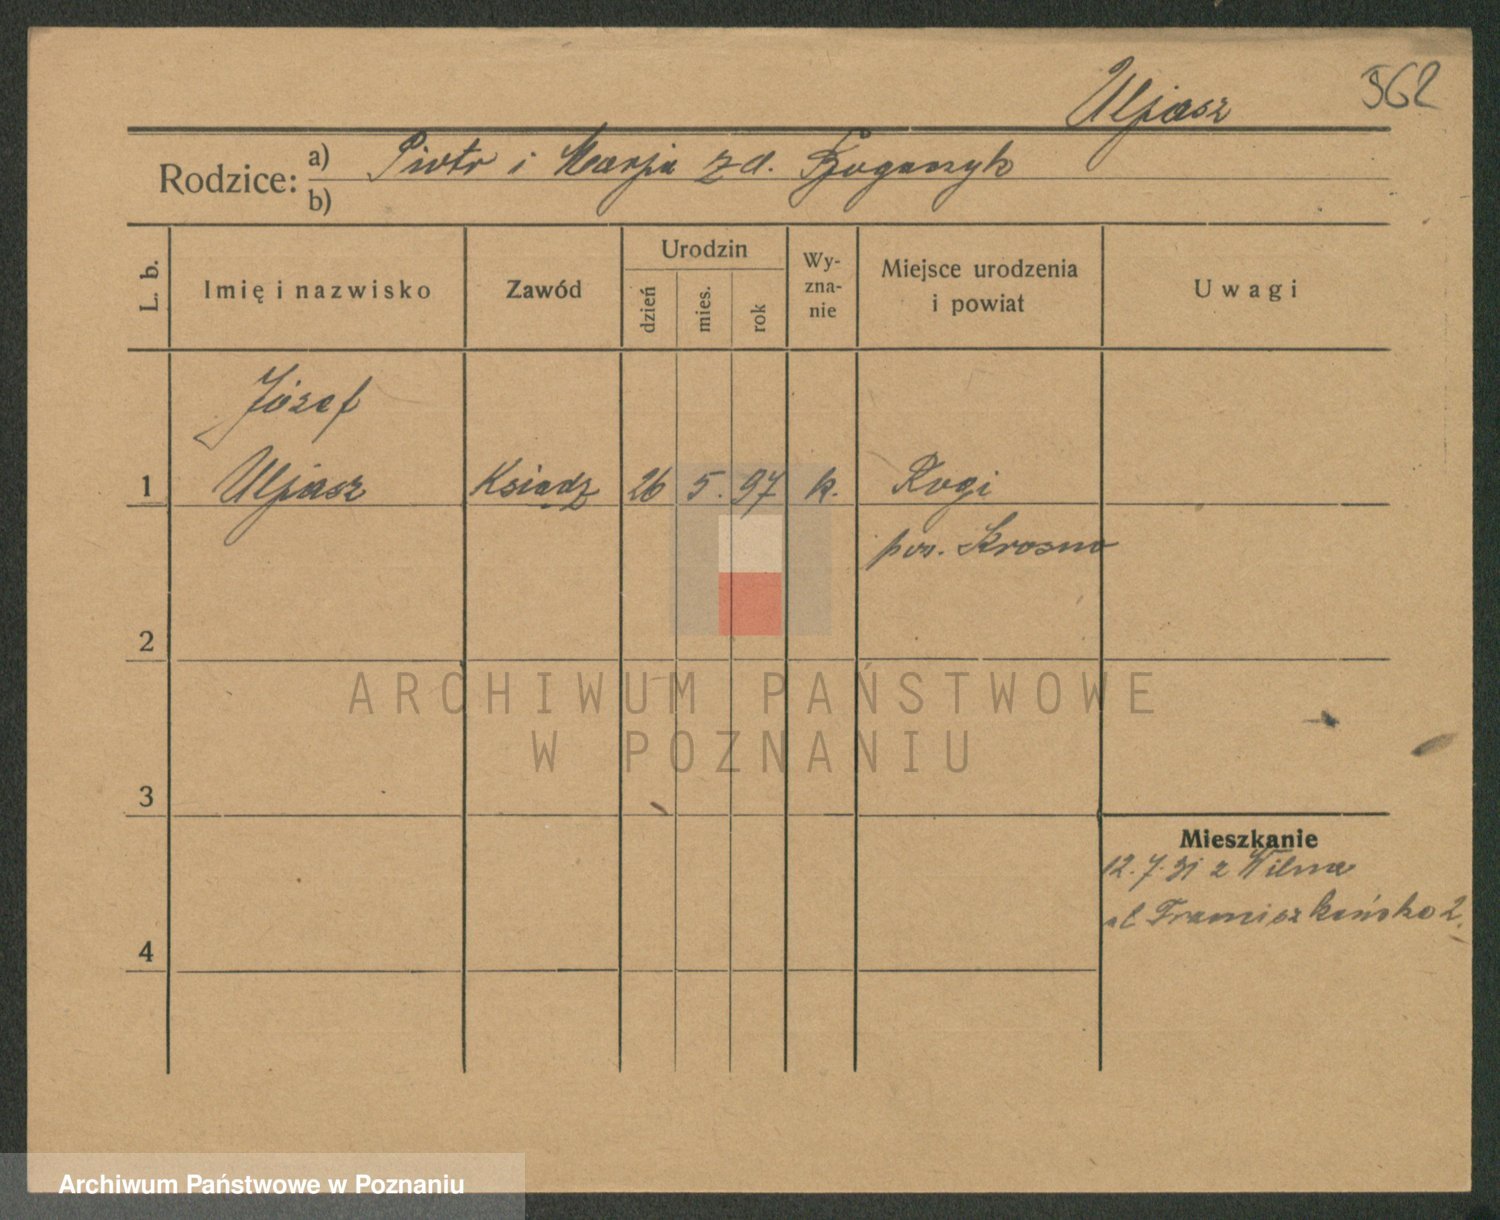 Uljasz 562
Rodzice: a) Piotr i Marja z d.
b)
L. b.
Imię i nazwisko
Zawód
Urodzin
dzień
mies.
rok
Wy-
zna-
nie
Miejsce urodzenia
i powiat
Uwagi
Józef
1 Uljasz Ksiądz 26 5. 97 k. Rogi
pow. Krosno
2
ARCHIWUM PAŃSTWOWE
W POZNANIU
3
Mieszkanie
12.7.31 z Wilna
ul. Franciszkańska 2.
4
Archiwum Państwowe w Poznaniu